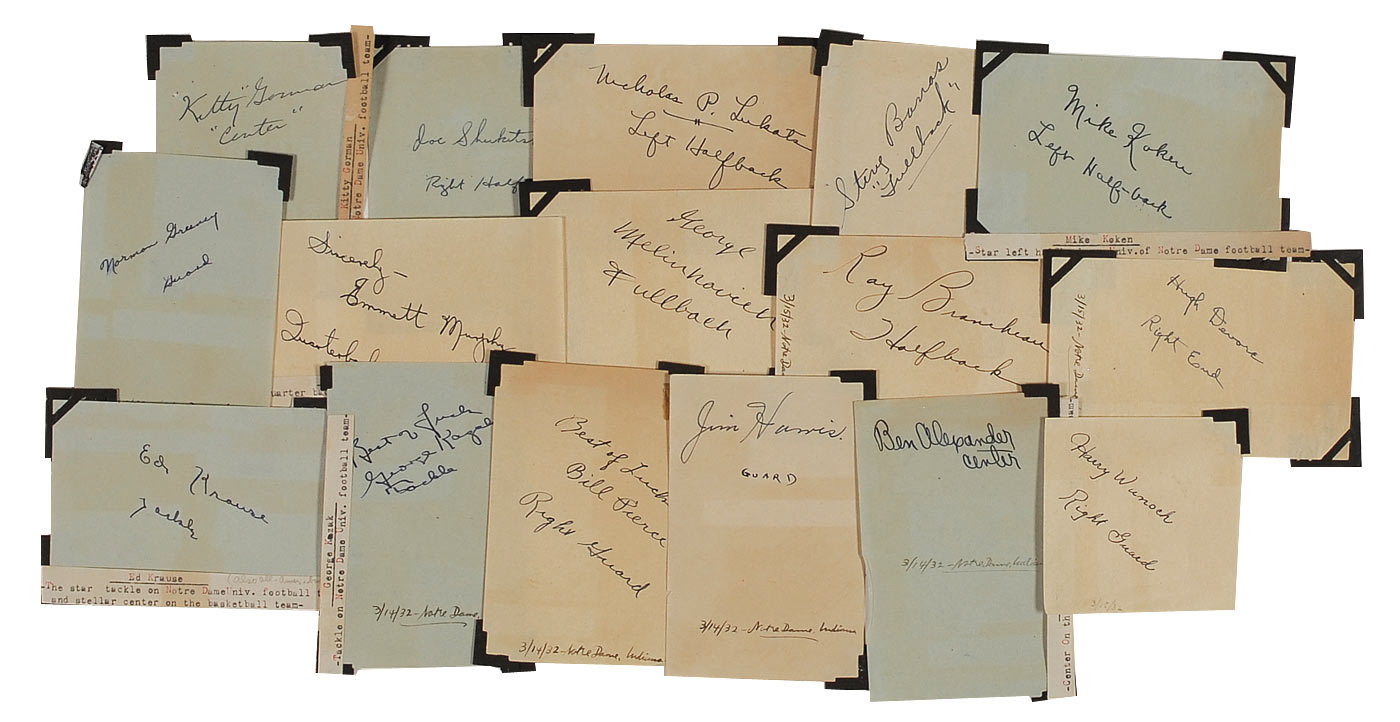 "Kitty" Gorman
"Center"
Kitty Gorman
Notre Dame Univ. football team-
Joe Shukets
Right Half
Nicholas P. Lukats
Left Halfback
Steve Banas
"Fullback"
Mike Koken
Left Half-back
Mike Koken
-Star left h Univ.of Notre Dame football team-
Norman Greeney
Guard
Sincerely-
Emmett Murphy
Quarterbac
uarter ba
George
Melinkovich
Fullback
3/15/32-Notre D
Ray Brancheau
Halfback
3/15/32-Notre Dame
Hugh Devore
Right End
Ed Krause
Tackle
Ed Krause
-The star tackle on Notre Dame Univ. football t
and stellar center on the basketball team-
George Kozak
-Tackle on Notre Dame Univ. football team-
Best of Luck
George Kozak
Tackle
3/14/32-Notre Dame,
Best of Luck
Bill Pierce
Right Guard
3/14/32-Notre Dame, Indiana
Jim Harris.
GUARD
3/14/32-Notre Dame, Indiana
Ben Alexander
center
3/14/32-Notre Dame, Indian
am-
-Center On th
Harry Wunsch
Right Guard
3/15/32